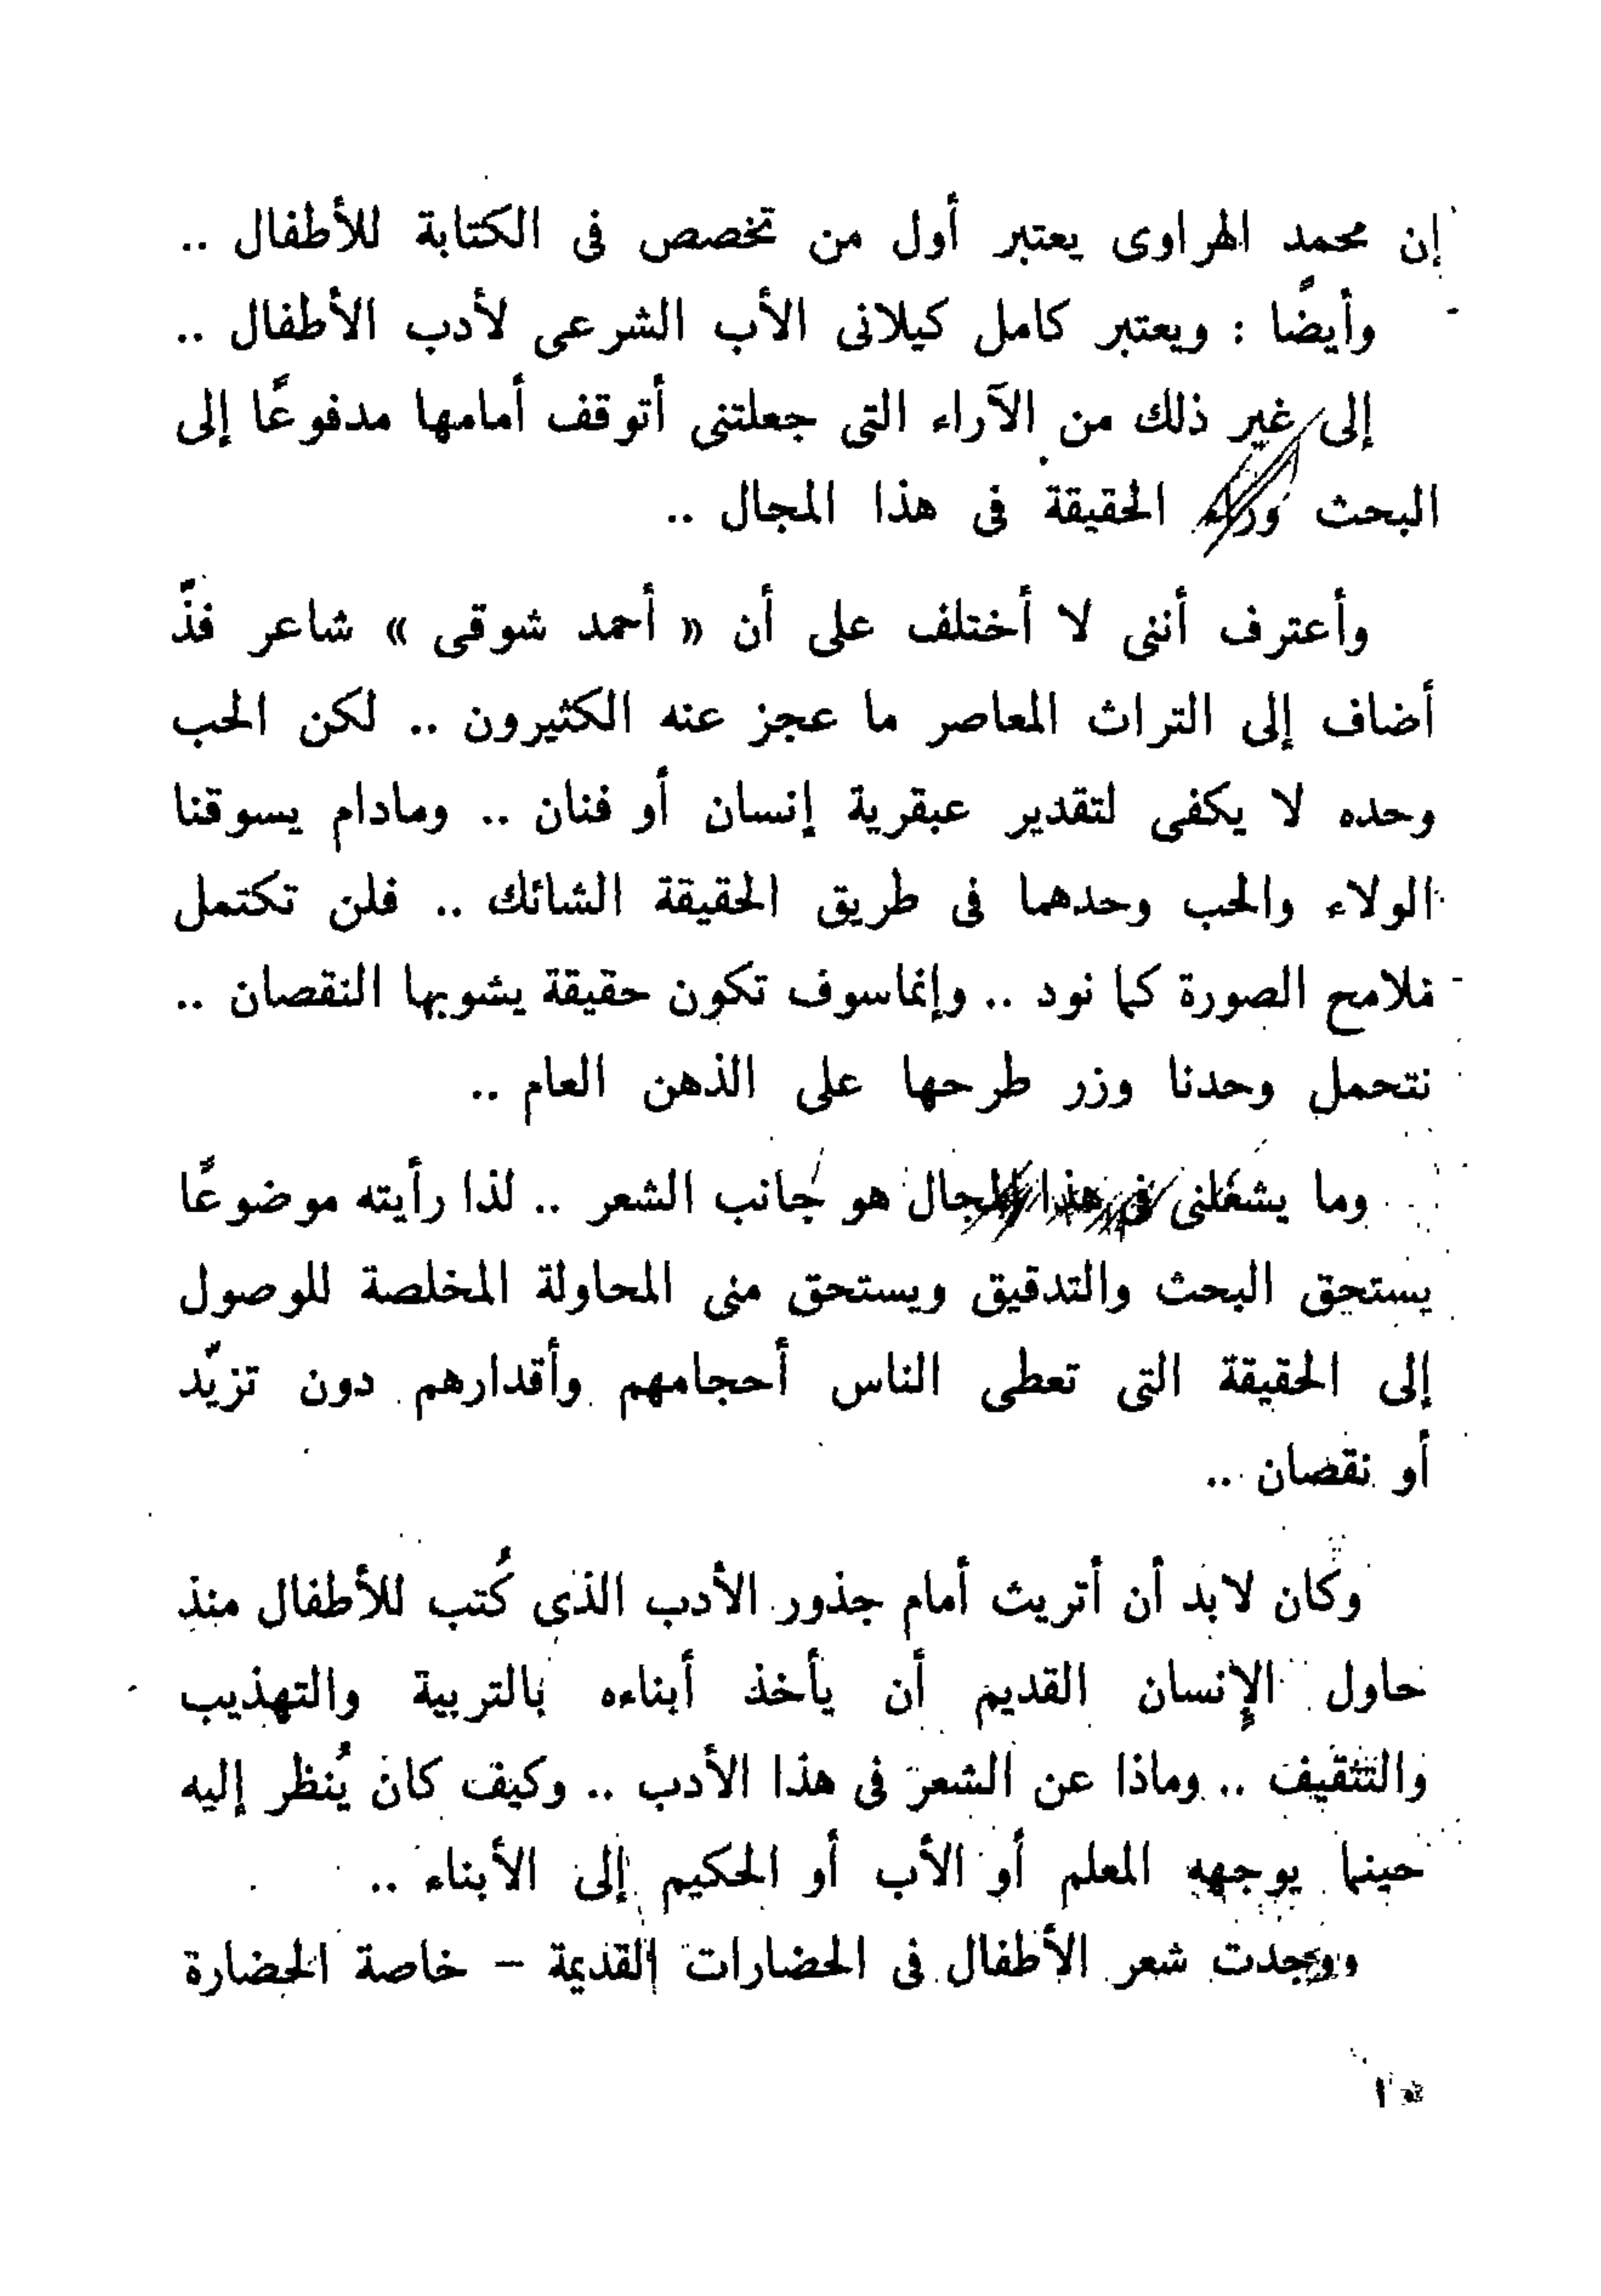 إن محمد الهراوى يعتبر أول من تخصص فى الكتابة للأطفال ..
وأيضًا : ويعتبر كامل كيلانى الأب الشرعى لأدب الأطفال ..
إلى غير ذلك من الآراء التى جعلتنى أتوقف أمامها مدفوعًا إلى
البحث وراء الحقيقة فى هذا المجال ..
وأعترف أننى لا أختلف على أن « أحمد شوقى » شاعر فذّ
أضاف إلى التراث المعاصر ما عجز عنه الكثيرون .. لكن الحب
وحده لا يكفى لتقدير عبقرية إنسان أو فنان .. ومادام يسوقنا
الولاء والحب وحدهما فى طريق الحقيقة الشائك .. فلن تكتمل
ملامح الصورة كما نود .. وإنماسوف تكون حقيقة يشوبها النقصان ..
نتحمل وحدنا وزر طرحها على الذهن العام ..
وما يشغلنى فى هذا المجال هو جانب الشعر .. لذا رأيته موضوعًا
يستحق البحث والتدقيق ويستحق منى المحاولة المخلصة للوصول
إلى الحقيقة التى تعطى الناس أحجامهم وأقدارهم دون تزيّد
أو نقصان ..
وكان لابد أن أتريث أمام جذور الأدب الذى كُتب للأطفال منذ
حاول الإنسان القديم أن يأخذ أبناءه بالتربية والتهذيب
والتثقيف .. وماذا عن الشعر فى هذا الأدب .. وكيف كان يُنظر إليه
حينما يوجهه المعلم أو الأب أو الحكيم إلى الأبناء ..
ووجدت شعر الأطفال فى الحضارات القديمة – خاصة الحضارة